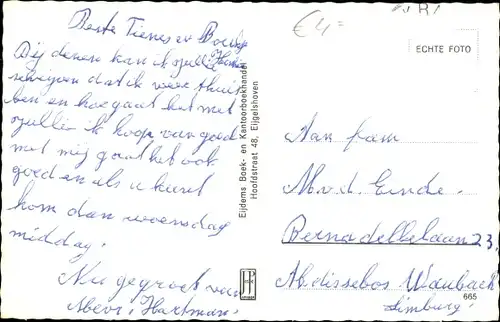 Beste Tienes en Boukje
Harrie
Bij deze kan ik jullie
schrijven dat ik weer thuis
ben en hoe gaat het met
jullie ik hoop van goed
met mij gaat het ook
goed en als u kunt
kom dan woensdag
middag!
Nu gegroet van
Mevr. Hartman.
Eijdems Boek- en Kantoorboekhandel
Hoofdstraat 48, Eijgelshoven
JP
€4=
ECHTE FOTO
Aan fam
M.v.d. Einde.
Bernadettelaan 23
Abdissebos Waubach
Limburg!
665